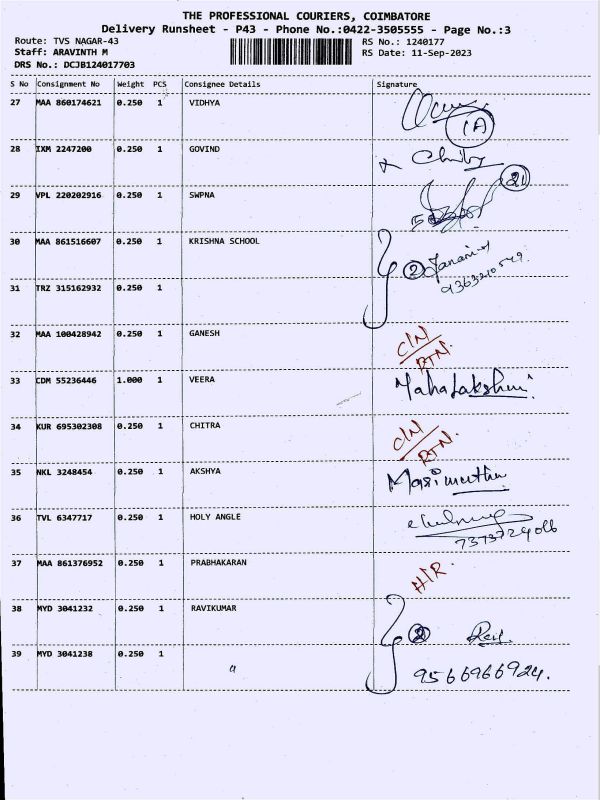 THE PROFESSIONAL COURIERS, COIMBATORE
Delivery Runsheet - P43 - Phone No.:0422-3505555 - Page No.:3
Route: TVS NAGAR-43 RS No.: 1240177
Staff: ARAVINTH M RS Date: 11-Sep-2023
DRS No.: DCJB124017703
S No Consignment No Weight PCS Consignee Details Signature
27 MAA 860174621 0.250 1 VIDHYA
1A
28 IXM 2247200 0.250 1 GOVIND
21
29 VPL 220202916 0.250 1 SWPNA
30 MAA 861516607 0.250 1 KRISHNA SCHOOL
2
31 TRZ 315162932 0.250 1
32 MAA 100428942 0.250 1 GANESH C/N
RTN.
33 CDM 55236446 1.000 1 VEERA Mahalakshmi
34 KUR 695302308 0.250 1 CHITRA C/N
RTN.
35 NKL 3248454 0.250 1 AKSHYA Marimuthu
36 TVL 6347717 0.250 1 HOLY ANGLE
7373724066
37 MAA 861376952 0.250 1 PRABHAKARAN
38 MYD 3041232 0.250 1 RAVIKUMAR
2 Ravi
39 MYD 3041238 0.250 1 9566966924.